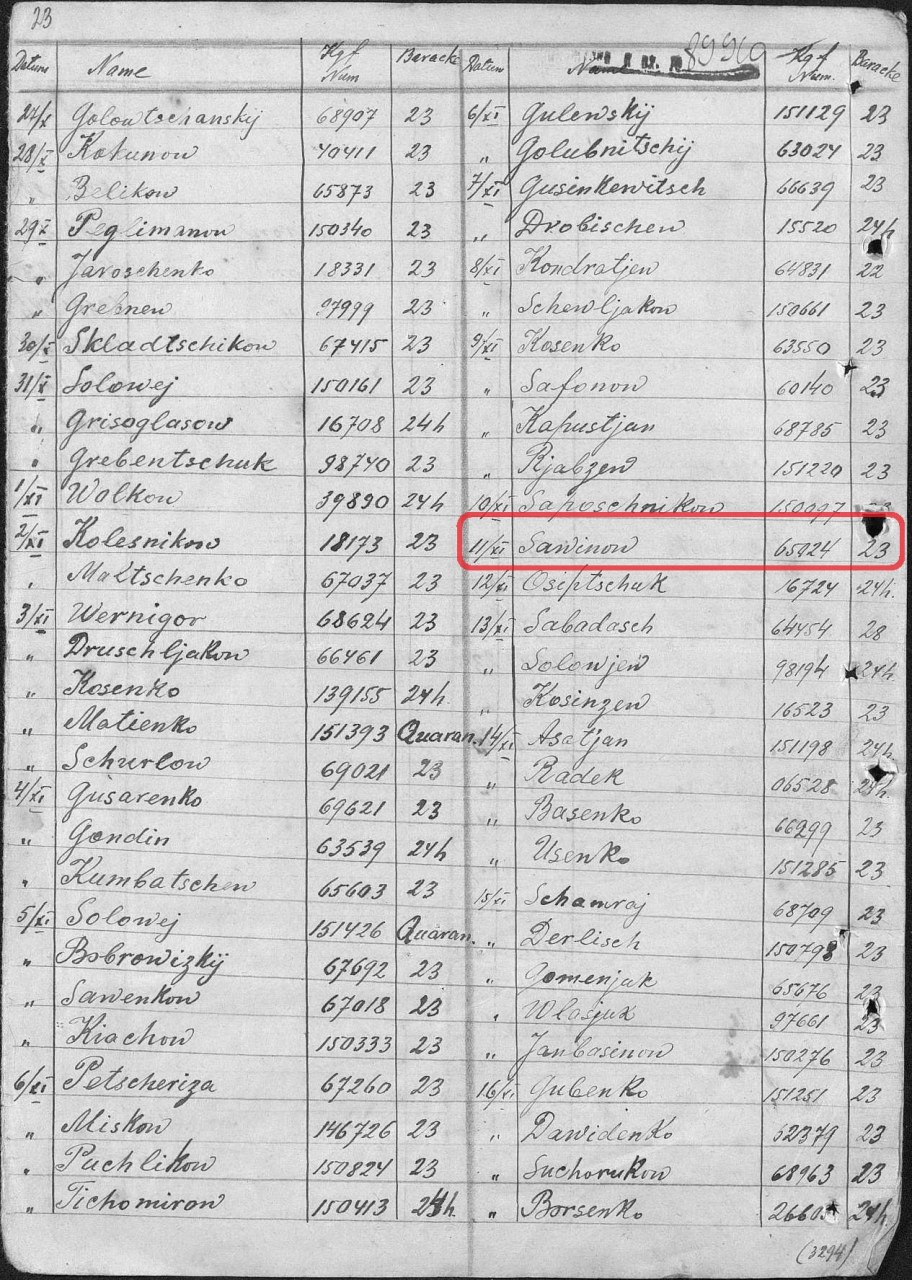 23
89969
Datum Name Kgf Num Baracke
27/X Golowtschanskij 68907 23
28/X Kokunow 40411 23
" Belikow 65873 23
29/X Peglimanow 150340 23
" Jaroschenko 18331 23
" Grebnew 97999 23
30/X Skladtschikow 67415 23
31/X Solowej 150161 23
" Grisoglasow 16708 24h
" Grebentschuk 98740 23
1/XI Wolkow 39890 24h
2/XI Kolesnikow 18173 23
" Maltschenko 67037 23
3/XI Wernigor 68624 23
" Druschljakow 66461 23
" Kosenko 139155 24h
" Matienko 151393 Quaran.
" Schurlow 69021 23
4/XI Gusarenko 69621 23
" Gondin 63539 24h
" Kumbatschew 65603 23
5/XI Solowej 151426 Quaran.
" Bobrowizkij 67692 23
" Sawenkow 67018 23
" Kiachow 150333 23
6/XI Petscheriza 67260 23
" Miskow 146726 23
" Puchlikow 150824 23
" Tichomirow 150413 24h.
Datum Name Kgf Num. Baracke
6/XI Gulewskij 151129 23
" Golubnitschij 63024 23
7/XI Gusinkewitsch 66639 23
" Drobischew 15520 24h
8/XI Kondratjew 64831 22
" Schewljakow 150661 23
9/XI Kosenko 63550 23
" Safonow 60140 23
" Kapustjan 68785 23
" Rjabzew 151220 23
10/XI Saposchnikow 150097
11/XI Sawinow 65024 23
12/XI Osiptschuk 16724 24h.
13/XI Sabadasch 64454 28
" Solowjew 98194 24h
" Kosinzew 16523 23
14/XI Asatjan 151198 24h
" Radek 06528 24h.
" Basenko 66299 23
" Usenko 151285 23
15/XI Schamraj 68709 23
" Derlisch 150798 23
" Gomenjuk 65676 23
" Wlasjuk 97661 23
" Janbasinow 150276 23
16/XI Gubenko 151251 23
" Dawidenko 52379 23
" Suchorukow 68963 23
" Borsenko 24h
(3294)